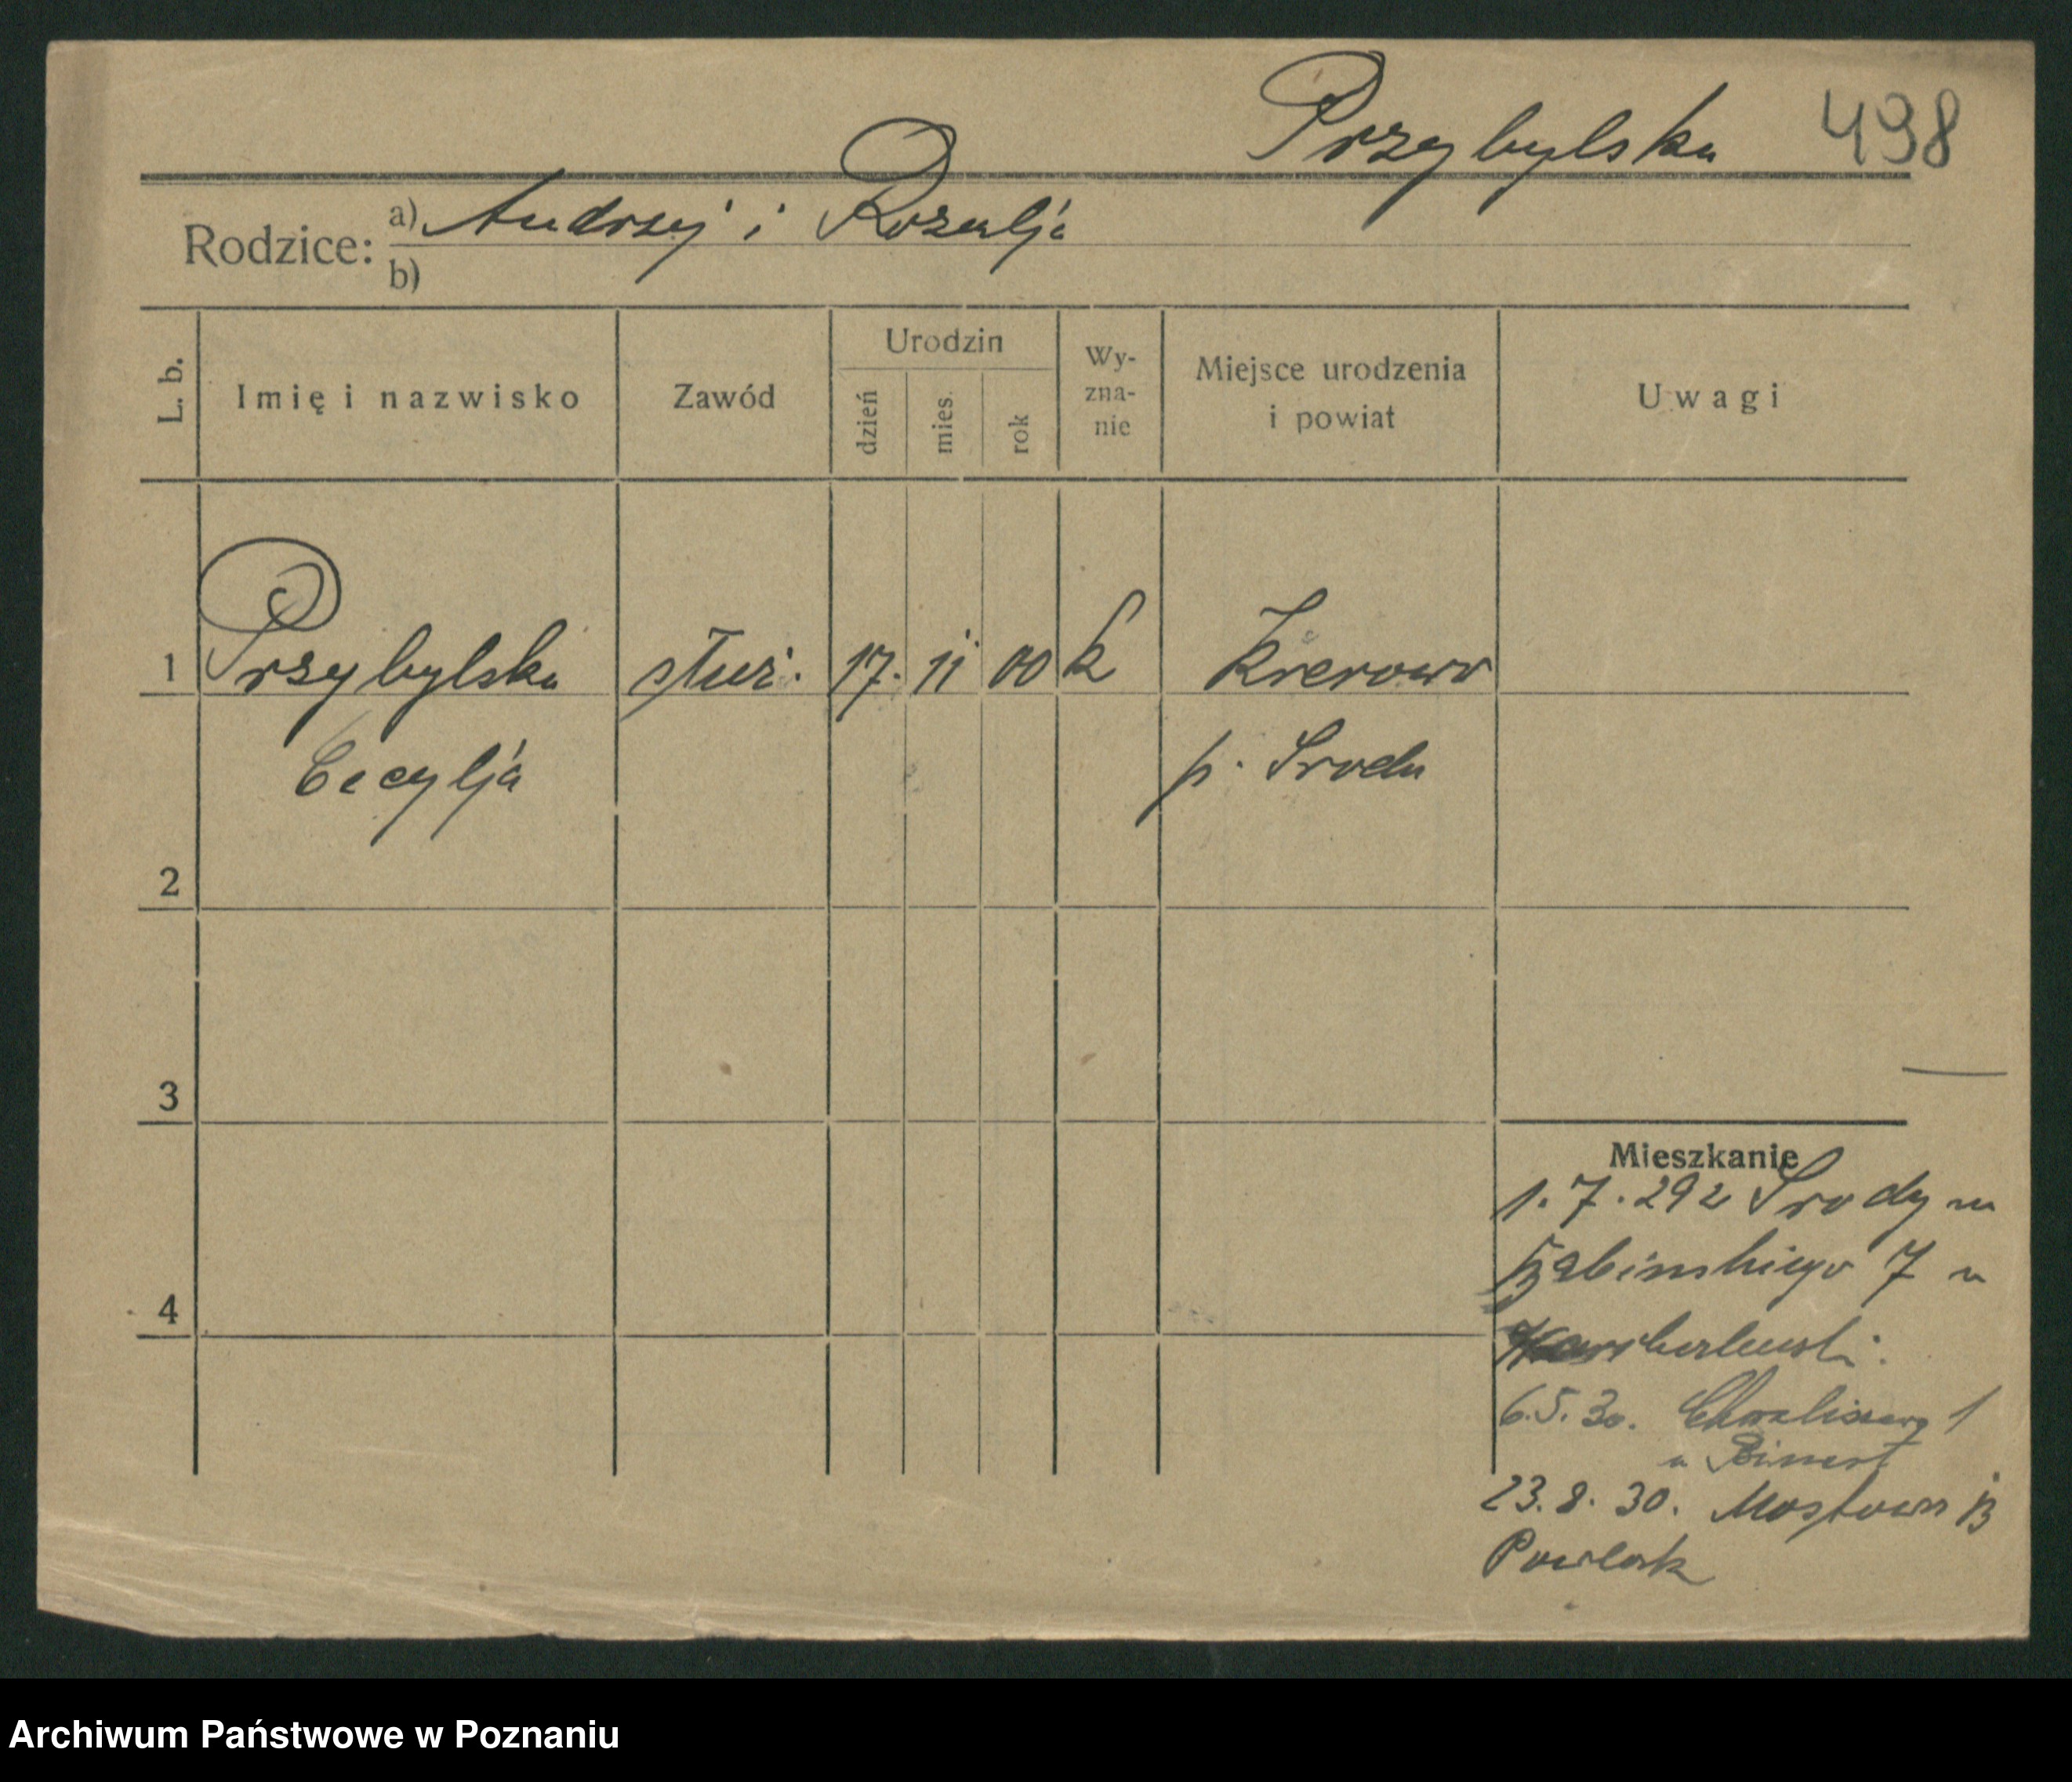 Przybylska 498
Rodzice: a) Andrzej i Rozalja
b)
L. b. Imię i nazwisko Zawód Urodzin dzień mies. rok Wy-zna-nie Miejsce urodzenia i powiat Uwagi
1 Przybylska służ. 17. 11 00 k Krerowo
Cecylja p. Środa
2
3
4
Mieszkanie
1.7.29 z Środy na
7 u
6.5.30. Chwaliszewo 1
u
23.8.30. Mostowa
Pawlak
Archiwum Państwowe w Poznaniu